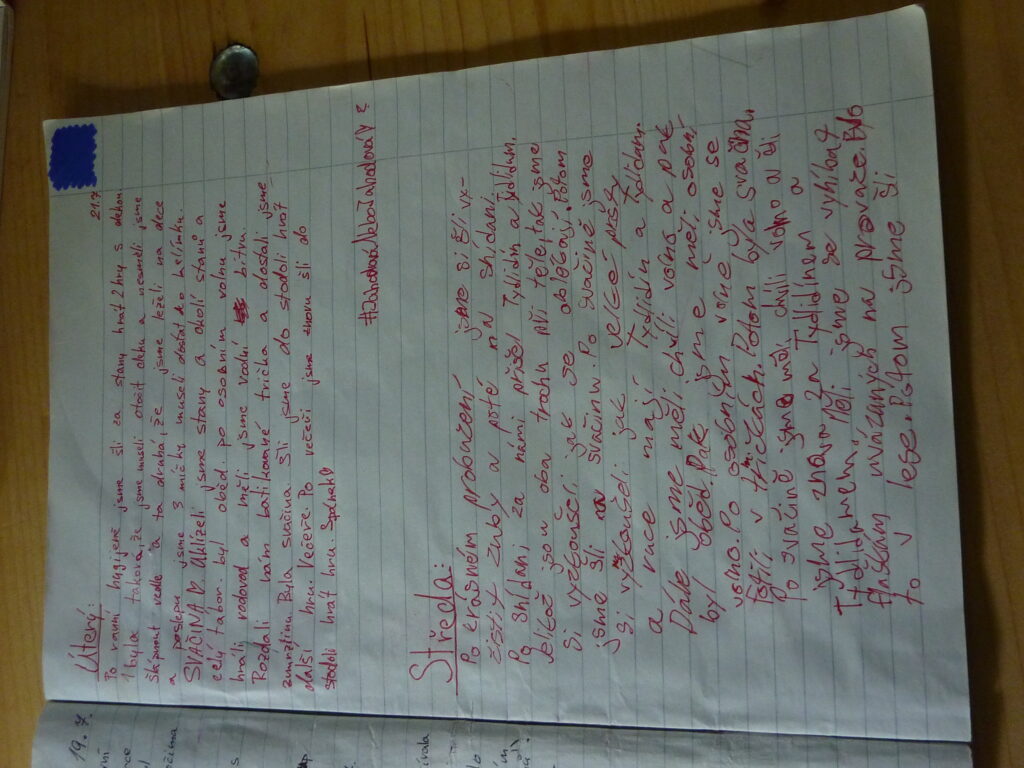 Úterý: 21.7
Po ranní hygieně jsme šli za stany hrát 2 hry s dekou
1. byla taková, že jsme museli otočit deku a nesměli jsme
šlápnout vedle a ta druhá, že jsme leželi na dece
a poslepu jsme 3 míčky museli dostat do kelímku
SVAČINA Uklízeli jsme stany a okolí stanů a
celý tábor. byl oběd po osobním volnu jsme
hráli vodovod a měli jsme vodní bitvu.
Rozdali nám batikované trička a dostali jsme
zmrzlinu Byla svačina šli jsme do stodoli hrát
další hru. Večeře. Po večeři jsme znovu šli do
stodoli hrát hru. Spánek
Středa:
Po krásném probuzení jsme si šli vy-
čistit zuby a poté na snídani.
Po snídani za námi přišel Tydlidin a Tydlidum.
Jelikož jsou oba trochu při těle, tak jsme
si vyzkoušeli jak se oblékají. Potom
jsme šli na svačinu. Po svačině jsme
si vyzkoušeli jak velké prsty
a ruce mají Tydlidin a Tydlidum.
Dále jsme měli chvíli volna a pak
byl oběd. Pak jsme měli osobní
volno. Po osobním volně jsme se
fotili v tričkách. Potom byla svačina.
Po svačině jsme měli chvíli volno a šli
jsme znovu za Tydlidinem a
Tydlidumem. Měli jsme se vyhýbat
flaškám uvázaných na provaze. Bylo
to v lese. Potom jsme šli
19.7.
s